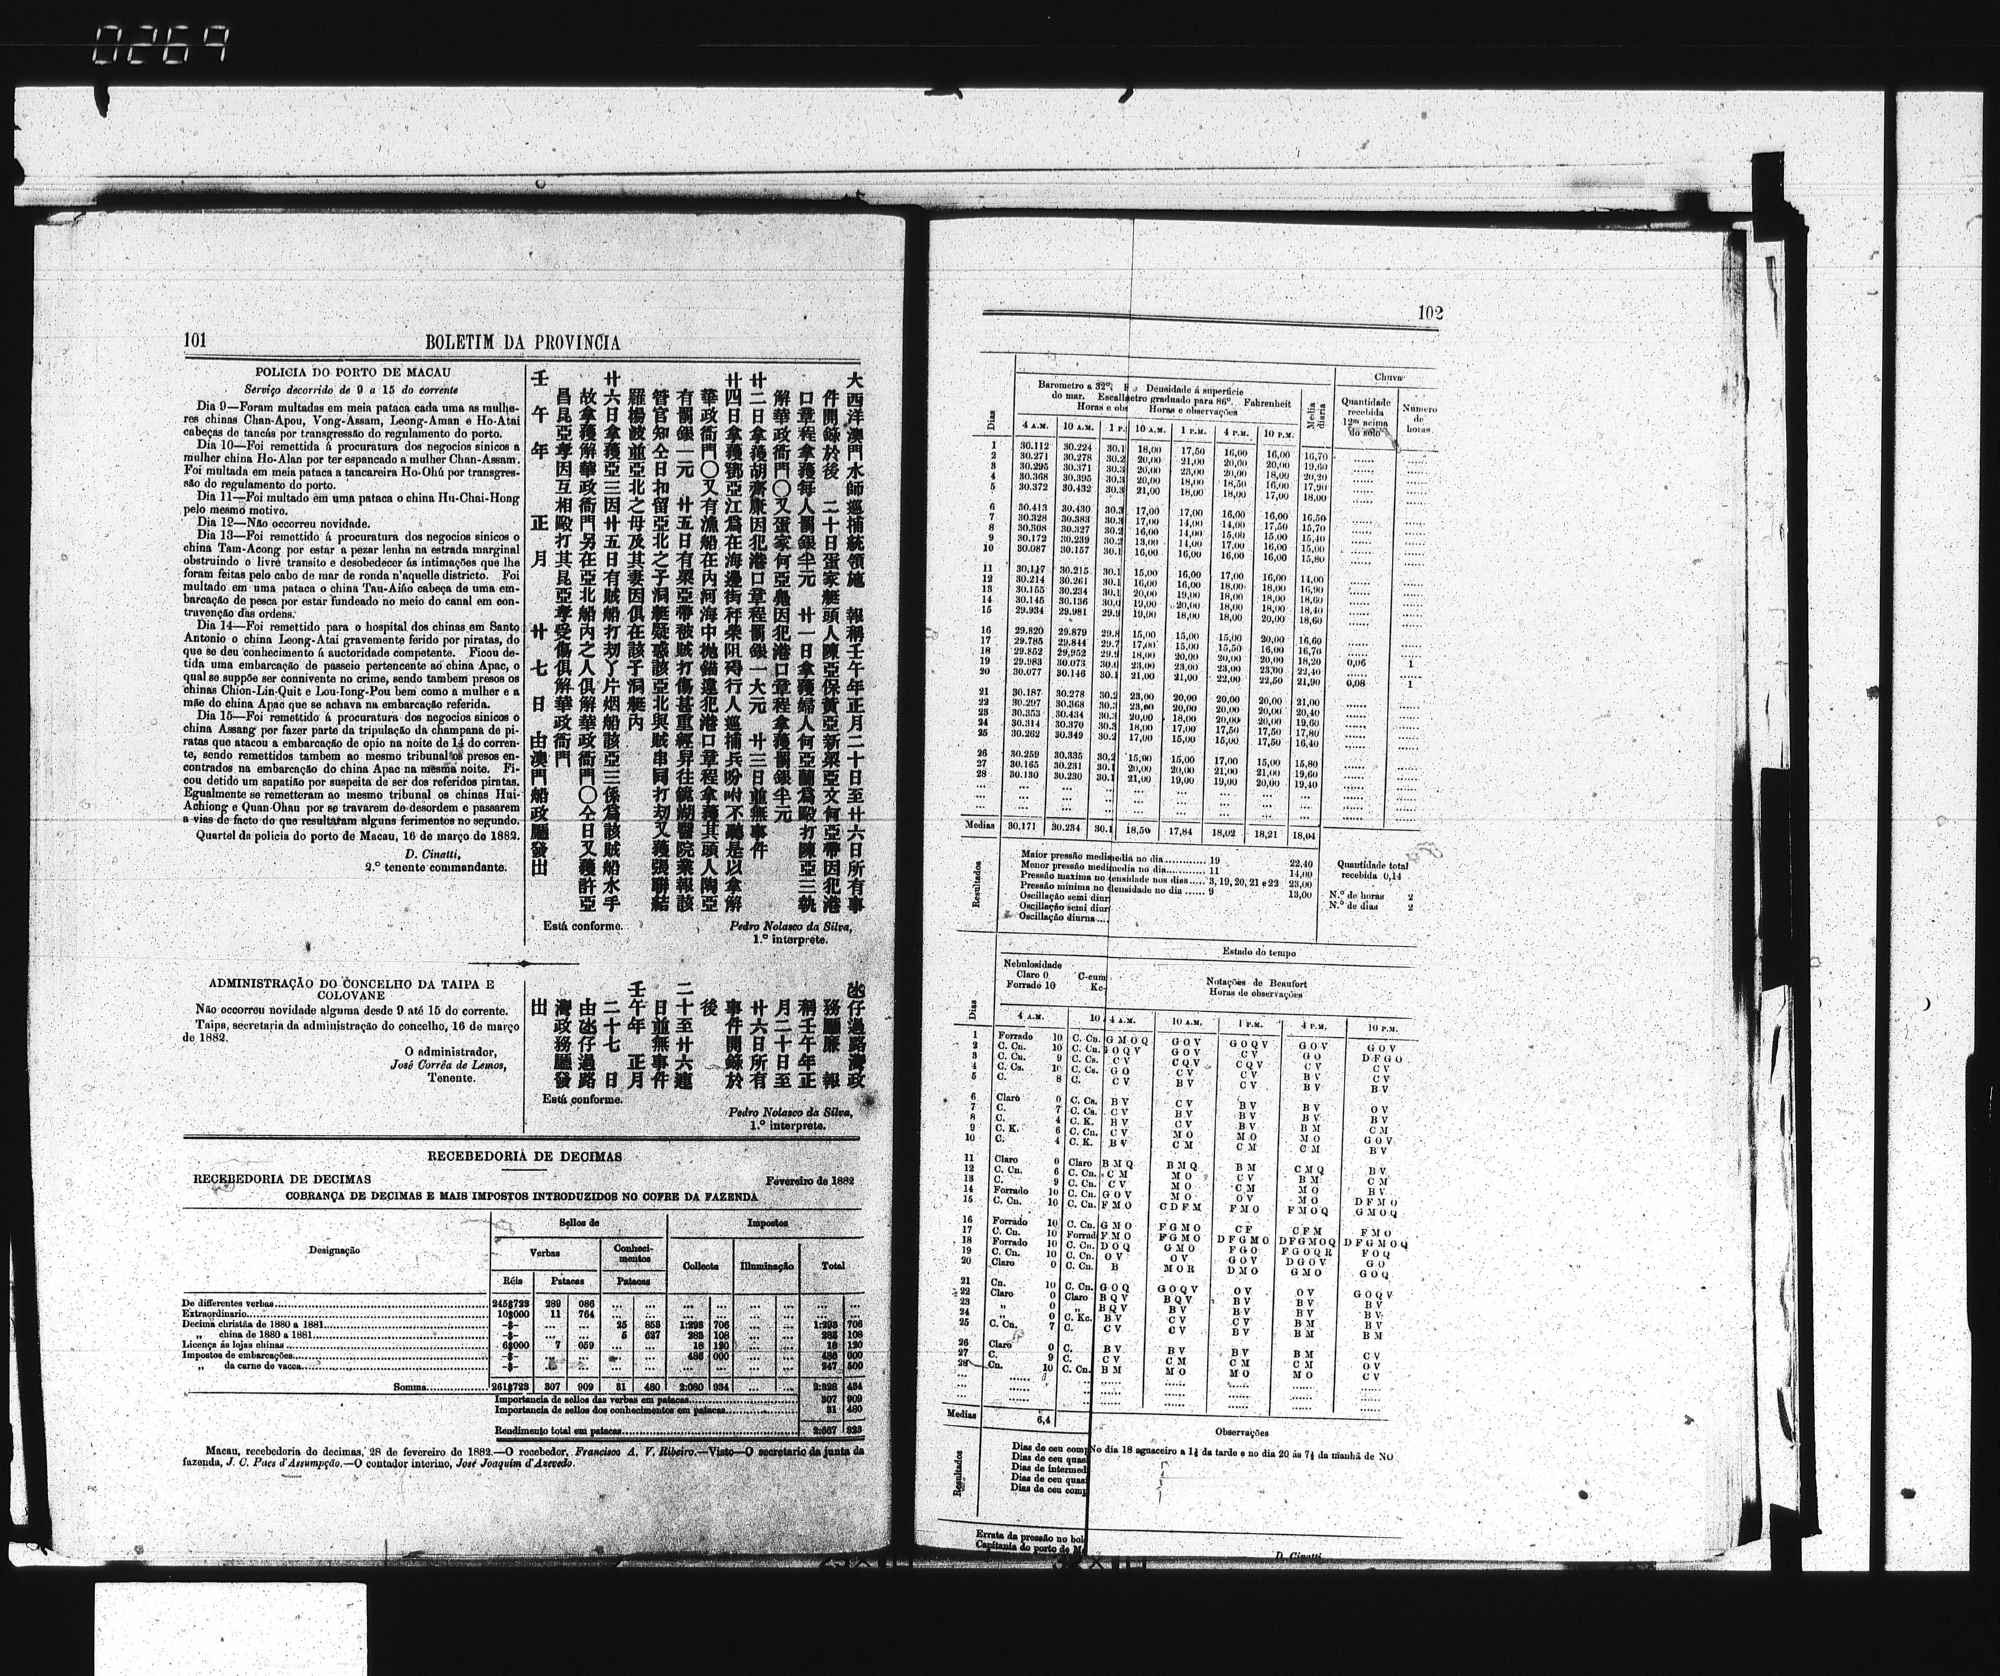 0269
101
BOLETIM DA PROVINCIA
POLICIA DO PORTO DE MACAU
Serviço decorrido de 9 a 15 do corrente
Dia 9—Foram multadas em meia pataca cada uma as mulhe-
res chinas Chan-Apou, Vong-Assam, Leong-Aman e Ho-Atai
cabeças de tancás por transgressão do regulamento do porto.
Dia 10—Foi remettida á procuratura dos negocios sinicos a
mulher china Ho-Alan por ter espancado a mulher Chan-Assam.
Foi multada em meia pataca a tancareira Ho-Ohú por transgres-
são do regulamento do porto.
Dia 11—Foi multado em uma pataca o china Hu-Chai-Hong
pelo mesmo motivo.
Dia 12—Não occorreu novidade.
Dia 13—Foi remettido á procuratura dos negocios sinicos o
china Tam-Acong por estar a pezar lenha na estrada marginal
obstruindo o livre transito e desobedecer ás intimações que lhe
foram feitas pelo cabo de mar de ronda n'aquelle districto. Foi
multado em uma pataca o china Tau-Aiño cabeça de uma em-
barcação de pesca por estar fundeado no meio do canal em con-
travenção das ordens.
Dia 14—Foi remettido para o hospital dos chinas em Santo
Antonio o china Leong-Atai gravemente ferido por piratas, do
que se deu conhecimento á auctoridade competente. Ficou de-
tida uma embarcação de passeio pertencente ao china Apac, o
qual se suppõe ser connivente no crime, sendo tambem presos os
chinas Chion-Lin-Quit e Lou-Iong-Pou bem como a mulher e a
mãe do china Apac que se achava na embarcação referida.
Dia 15—Foi remettido á procuratura dos negocios sinicos o
china Assang por fazer parte da tripulação da champana de pi-
ratas que atacou a embarcação de opio na noite de 14 do corren-
te, sendo remettidos tambem ao mesmo tribunal os presos en-
contrados na embarcação do china Apac na mesma noite. Fi-
cou detido um sapatião por suspeita de ser dos referidos piratas.
Egualmente se remetteram ao mesmo tribunal os chinas Hui-
Achiong e Quan-Ohau por se travarem de desordem e passarem
a vias de facto do que resultaram alguns ferimentos no segundo.
Quartel da policia do porto de Macau, 16 de março de 1882.
D. Cinatti,
2.º tenente commandante.
大西洋澳門水師巡捕統領施 報稱壬午年正月二十日至廿六日所有事
件開錄於後 二十日蛋家艇頭人陳亞保黃亞新梁亞文何亞帶因犯港
口章程拿獲每人罰銀半元 廿一日拿獲婦人何亞蘭爲毆打陳亞三執
解華政衙門〇又蛋家何亞堯因犯港口章程拿獲罰銀半元
廿二日拿獲胡齊康因犯港口章程罰銀一大元 廿三日並無事件
廿四日拿獲鄧亞江爲在海邊街秤柴阻碍行人巡捕兵吩咐不聽是以拿解
華政衙門〇又有漁船在內河海中拋錨違犯港口章程拿獲其頭人陶亞
有罰銀一元 廿五日有梁亞帶被賊打傷甚重經昇往鏡湖醫院業報該
管官知仝日扣留亞北之子洞艇疑惑該亞北與賊串同打刧又獲張聯結
羅楊波並亞北之母及其妻因俱在該子洞艇內
廿六日拿獲亞三因廿五日有賊船打刧了片烟船該亞三係爲該賊船水手
故拿獲解華政衙門另在亞北船內之人俱解華政衙門〇仝日又獲許亞
昌昆亞孝因互相毆打其昆亞孝受傷俱解華政衙門
壬午年 正月 廿七日 由澳門船政廳發出
Está conforme.
Pedro Nolasco da Silva,
1.º interprete.
ADMINISTRAÇÃO DO CONCELHO DA TAIPA E
COLOVANE
Não occorreu novidade alguma desde 9 até 15 do corrente.
Taipa, secretaria da administração do concelho, 16 de março
de 1882.
O administrador,
José Corrêa de Lemos,
Tenente.
氹仔過路灣政
務廳廉 報
稱壬午年正
月二十日至
廿六日所有
事件開錄於
後
二十至廿六連
日並無事件
壬午年 正月
二十七 日
由氹仔過路
灣政務廳發
出
Está conforme.
Pedro Nolasco da Silva,
1.º interprete.
RECEBEDORIA DE DECIMAS
RECEBEDORIA DE DECIMAS
Fevereiro de 1882
COBRANÇA DE DECIMAS E MAIS IMPOSTOS INTRODUZIDOS NO COFRE DA FAZENDA
Designação
Sellos de
Impostos
Verbas
Conheci-
mentos
Collecta
Illuminação
Total
Réis
Patacas
Patacas
De differentes verbas 245$723 289 086 ... ... ... ... ... ... ... ...
Extraordinario 10$000 11 764 ... ... ... ... ... ... ... ...
Decima christãa de 1880 a 1881 -$- ... ... 25 853 1:293 706 ... ... 1:293 706
„ china de 1880 a 1881 -$- ... ... 5 627 283 108 ... ... 283 108
Licença ás lojas chinas 6$000 7 059 ... ... 18 120 ... ... 18 120
Impostos de embarcações -$- ... ... ... ... 486 000 ... ... 486 000
„ da carne de vacca -$- ... ... ... ... ... ... ... ... 247 500
Somma 261$723 307 909 31 480 2:080 934 ... ... 2:328 434
Importancia de sellos das verbas em patacas 307 909
Importancia de sellos dos conhecimentos em patacas 31 480
Rendimento total em patacas 2:667 823
Macau, recebedoria do decimas, 28 de fevereiro de 1882.—O recebedor, Francisco A. V. Ribeiro.—Visto—O secretario da junta da
fazenda, J. C. Paes d'Assumpção.—O contador interino, José Joaquim d'Azevedo.
102
Barometro a 32º
do mar. Escal
Horas e obs
Densidade á superficie
graduado para 86º. Fahrenheit
Horas e observações
Chuva
Dias
4 A.M. 10 A.M. 1 P. 10 A.M. 1 P.M. 4 P.M. 10 P.M.
Media diaria
Quantidade
recebida
acima
do sólo
Numero
de
horas
1 30.112 30.224 30.1 18,00 17,50 16,00 16,00 16,70
2 30.271 30.278 30.2 20,00 21,00 20,00 20,00 19,60
3 30.295 30.371 30.3 20,00 23,00 20,00 18,00 20,20
4 30.368 30.395 30.3 20,00 18,00 18,50 16,00 17,90
5 30.372 30.432 30.3 21,00 18,00 18,00 17,00 18,00
6 30.413 30.430 30.3 17,00 17,00 16,00 16,00 16,50
7 30.328 30.383 30.3 17,00 14,00 14,00 17,50 15,70
8 30.308 30.327 30.2 16,00 14,00 15,00 15,00 15,40
9 30.172 30.239 30.2 13,00 14,00 17,00 16,00 15,00
10 30.087 30.157 30.1 16,00 16,00 16,00 16,00 15,80
11 30.117 30.215 30.1 15,00 16,00 17,00 16,00 14,00
12 30.214 30.261 30.1 16,00 16,00 18,00 18,00 16,90
13 30.155 30.234 30.1 20,00 19,00 18,00 18,00 18,60
14 30.145 30.136 30.0 19,00 20,00 18,00 18,00 18,40
15 29.934 29.981 29.9 19,00 18,00 18,00 20,00 18,60
16 29.820 29.879 29.8 15,00 15,00 15,00 20,00 16,60
17 29.785 29.844 29.7 17,00 15,00 15,50 16,00 16,70
18 29.852 29.952 29.9 18,00 20,00 20,00 20,00 18,20
19 29.983 30.073 30.0 23,00 23,00 23,00 23,00 22,40 0,06 1
20 30.077 30.146 30.1 21,00 21,00 22,00 22,50 21,90 0,08 1
21 30.187 30.278 30.2 23,00 20,00 20,00 20,00 21,00
22 30.297 30.368 30.3 23,00 20,00 20,00 20,00 20,40
23 30.353 30.434 30.3 20,00 18,00 20,00 20,00 19,60
24 30.314 30.370 30.3 18,00 17,00 17,50 17,50 17,80
25 30.262 30.349 30.2 17,00 15,00 15,00 17,50 16,40
26 30.259 30.335 30.2 15,00 15,00 17,00 15,00 15,80
27 30.165 30.231 30.1 20,00 20,00 21,00 21,00 19,60
28 30.130 30.230 30.1 21,00 19,00 19,00 20,00 19,40
Medias 30.171 30.234 30.1 18,50 17,84 18,02 18,21 18,04
Resultados
Maior pressão medi media no dia 19 22,40
Menor pressão medi media no dia 11 14,00
Pressão maxima no densidade nos dias 3, 19, 20, 21 e 22 23,00
Pressão minima no densidade no dia 9 13,00
Oscillação semi diur
Oscillação semi diur
Oscillação diurna
Quantidade total
recebida 0,14
N.º de horas 2
N.º de dias 2
Estado do tempo
Nebulosidade
Claro 0
Forrado 10
C-cum
Kc-
Notações de Beaufort
Horas de observações
Dias
4 A.M. 10 4 A.M. 10 A.M. 1 P.M. 4 P.M. 10 P.M.
1 Forrado 10 C. Cn. G M O Q G O V G O Q V G O V G O V
2 C. Cn. 10 C. Cn. G O Q V G O V C V G O D F G O
3 C. Cn. 9 C. Cs. C V C Q V C Q V C V C V
4 C. Cs. 10 C. Cs. G O C V C V B V C V
5 C. 8 C. C V B V C V B V B V
6 Claro 0 C. Cs. B V C V B V B V O V
7 C. 7 C. Cs. C V B V B V B V B V
8 C. 4 C. K. B V C V B V B M C M
9 C. K. 6 C. Cn. C V M O M O M O G O V
10 C. 4 C. K. B V C M C M C M B V
11 Claro 0 Claro B M Q B M Q B M C M Q B V
12 C. Cn. 6 C. Cn. C M M O C V B M C M
13 C. 9 C. Cn. C V M O C M M O B V
14 Forrado 10 C. Cn. G O V M O O V M O D F M O
15 C. Cn. 10 C. Cn. F M O C D F M F M O F M O Q G M O Q
16 Forrado 10 C. Cn. G M O F G M O C F C F M F M O
17 C. Cn. 10 Forrad F M O F G M O D F G M O D F G M O Q D F G M O Q
18 Forrado 10 C. Cn. D O Q G M O F G O F G O Q R F O Q
19 C. Cn. 10 C. Cn. O V O V G O V D G O V G O
20 Claro 0 C. Cn. B M O R D M O G M O G O Q
21 Cn. 10 C. Cn. G O Q G O Q V O V O V G O Q V
22 Claro 0 Claro B Q V B Q V B V B V B V
23 „ 0 „ B Q V B V B V B V B V
24 „ 0 C. Kc. B V C V C V B M B V
25 C. Cn. 7 C. C V C V B V B M B M
26 Claro 0 C. B V B V B V B M C V
27 C. 9 C. C V C M C M C M O V
28 Cn. 10 C. Cn. B M M O M O M O C V
Medias 6,4
Observações
Resultados
Dias de ceu comp
Dias de ceu quas
Dias de intermed
Dias de ceu quas
Dias de ceu comp
No dia 18 aguaceiro a 1½ da tarde e no dia 20 ás 7½ da manhã de NO
Errata da pressão no bol
Capitania do porto de M
D. Cinatti